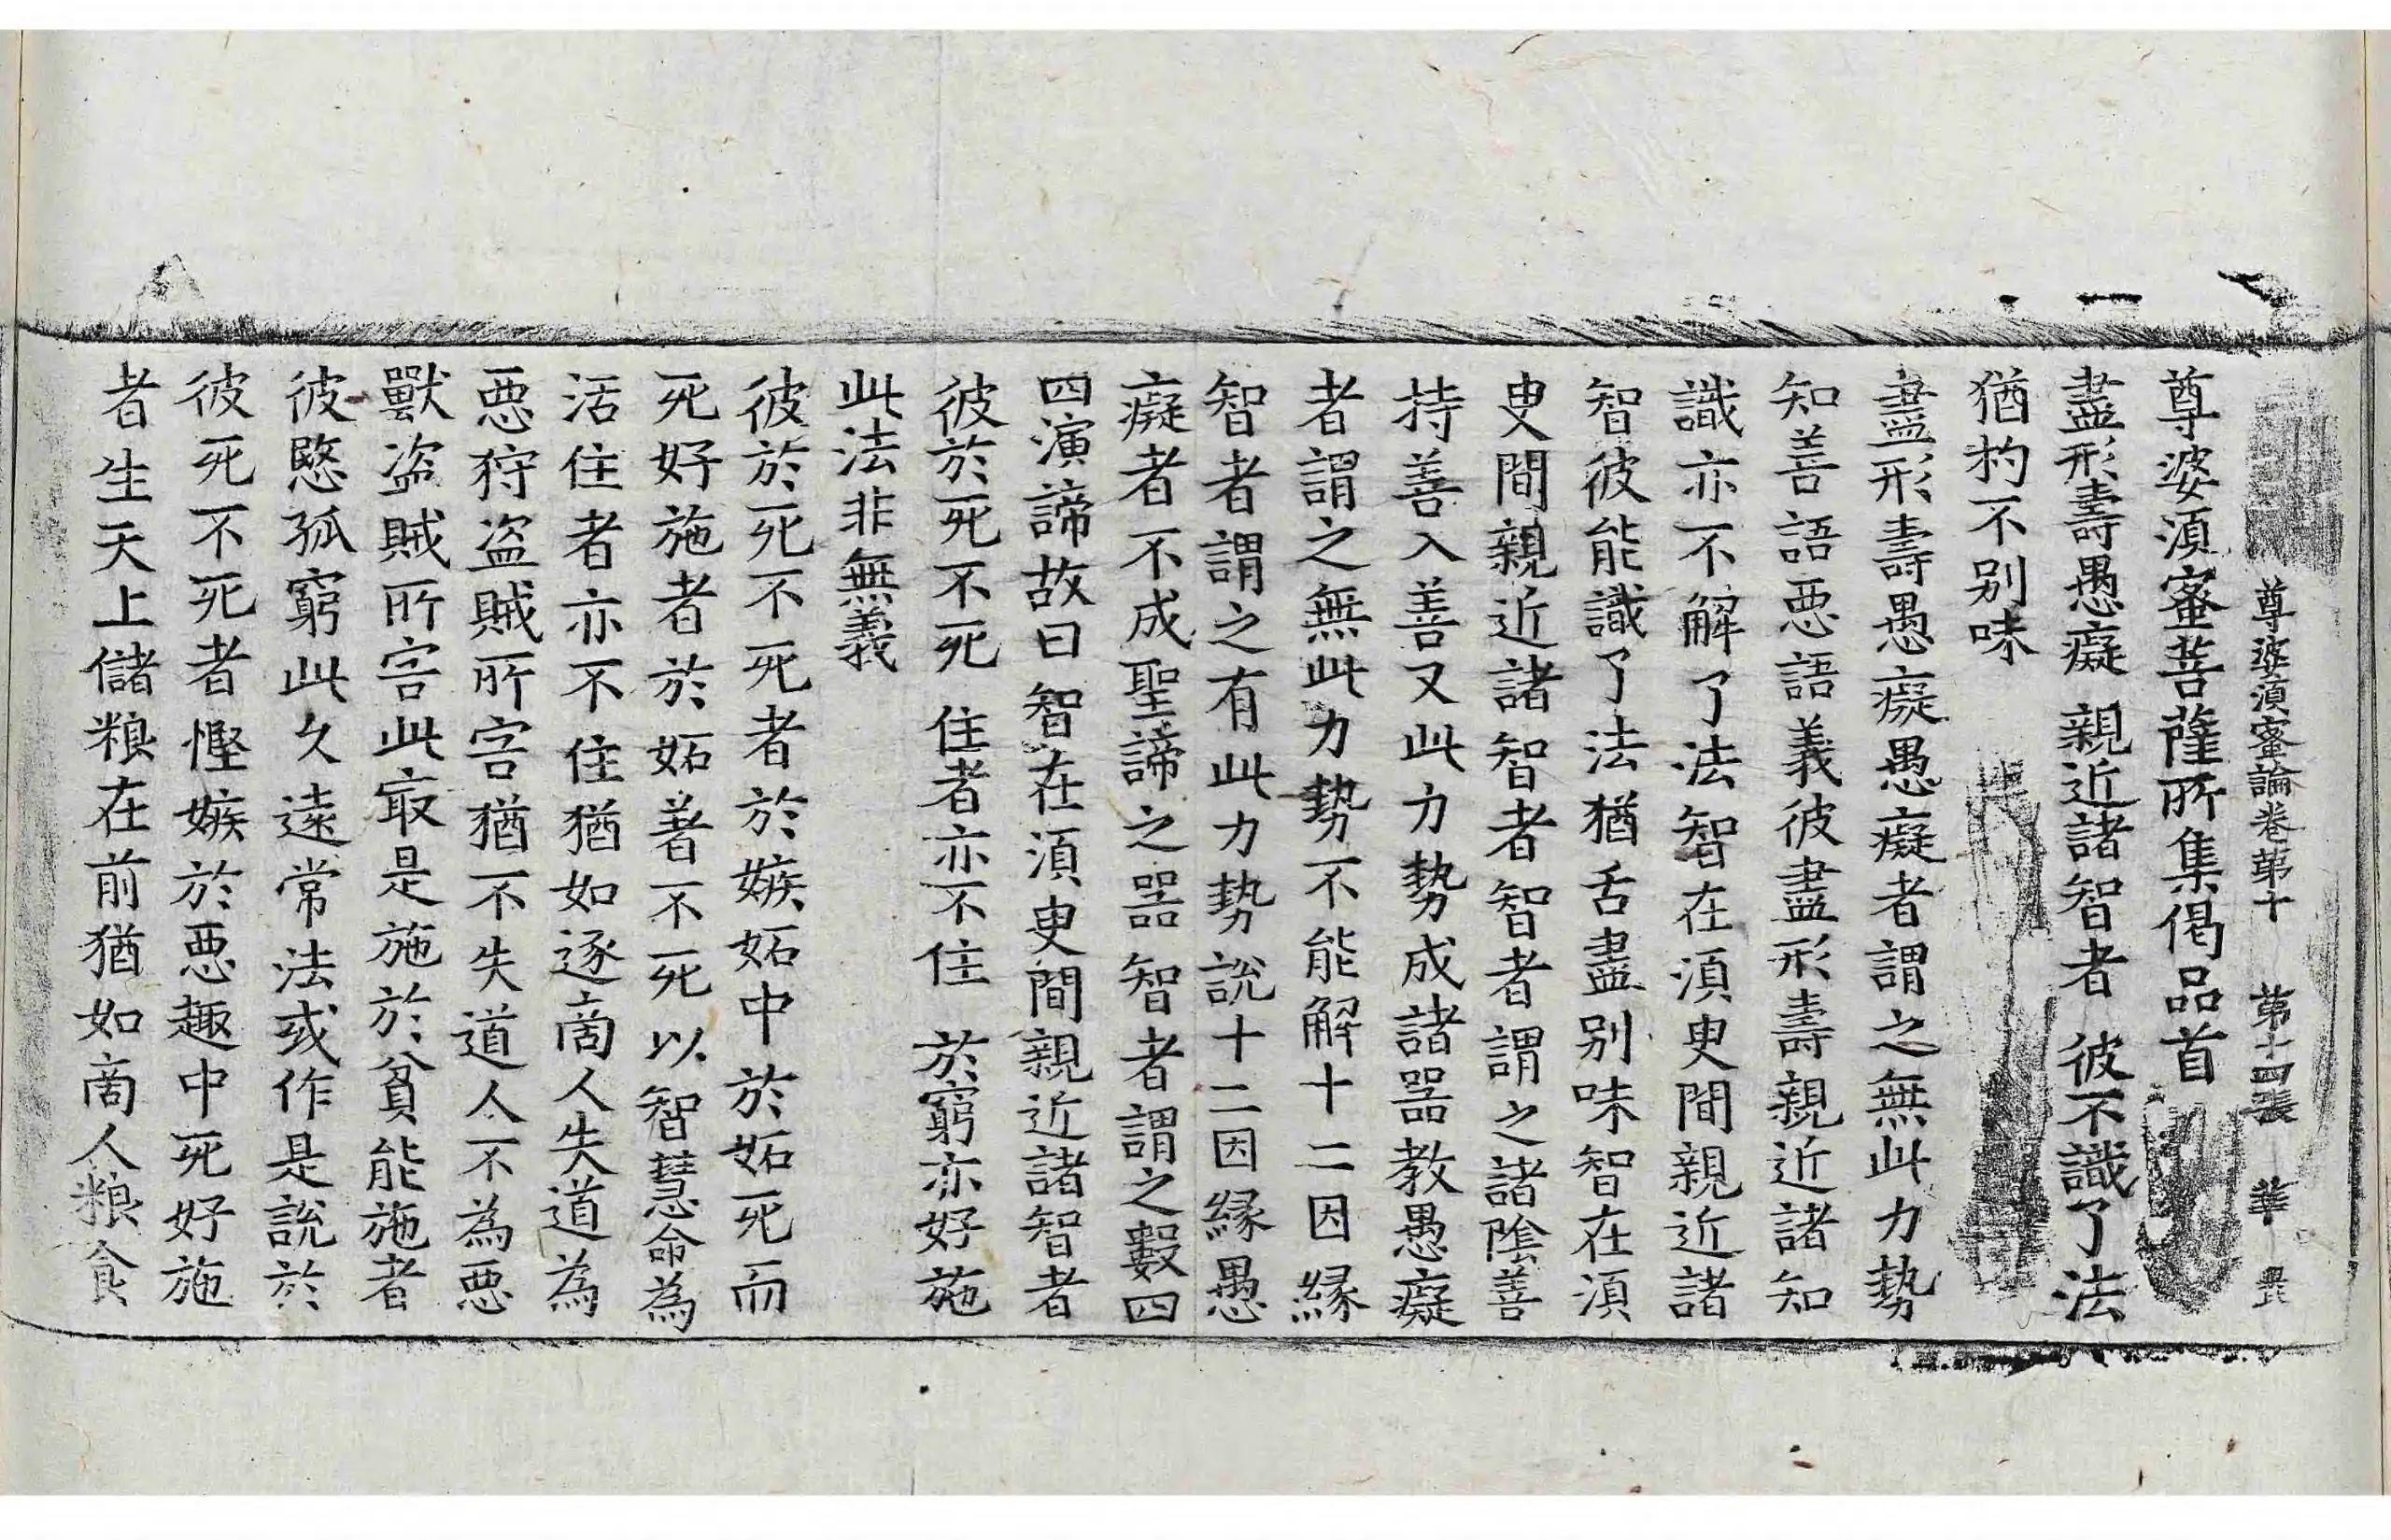 尊婆須蜜論卷第十 第十四張 華 農
尊婆須蜜菩薩所集偈品首
盡形壽愚癡 親近諸智者 彼不識了法
猶杓不別味
盡形壽愚癡愚癡者謂之無此力勢
知善語惡語義彼盡形壽親近諸知
識亦不解了法智在須臾間親近諸
智彼能識了法猶舌盡別味智在須
臾間親近諸智者智者謂之諸陰善
持善入善又此力勢成諸器教愚癡
者謂之無此力勢不能解十二因緣
智者謂之有此力勢說十二因緣愚
癡者不成聖諦之器智者謂之數四
四演諦故曰智在須臾間親近諸智者
彼於死不死 住者亦不住 於窮亦好施
此法非無義
彼於死不死者於嫉妬中於妬死而
死好施者於妬著不死以智慧命為
活住者亦不住猶如逐啇人失道為
惡狩盜賊所害猶不失道人不為惡
獸盜賊所害此㝡是施於貧能施者
彼愍孤窮此久遠常法或作是說於
彼死不死者慳嫉於惡趣中死好施
者生天上儲粮在前猶如啇人粮食